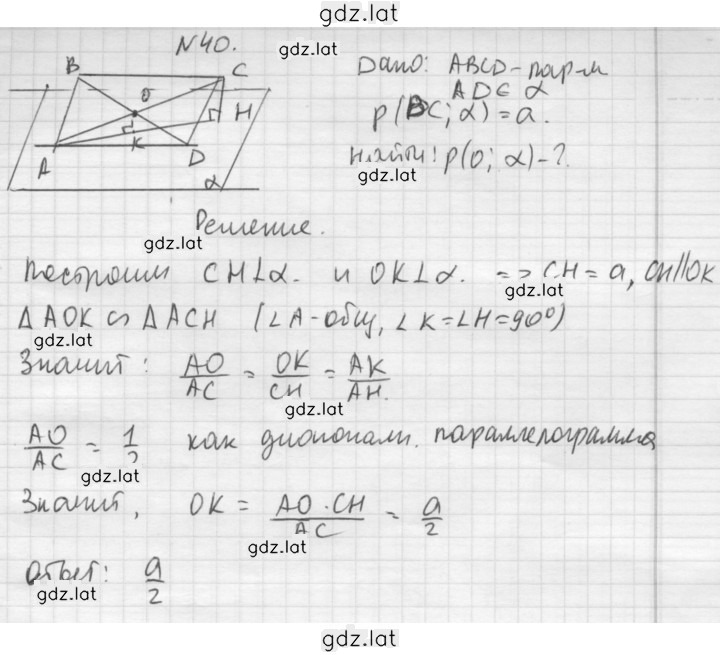 gdz.lat
N40.
gdz.lat
Дано: ABCD - пар-м
AD ∈ α
ρ(BC; α) = a.
Найти: ρ(O; α) - ?
gdz.lat
B C O H A K D α
Решение.
gdz.lat
Построим CH ⊥ α. и OK ⊥ α. => CH = a, CH || OK
gdz.lat
Δ AOK ∽ Δ ACH (∠A - общ, ∠K = ∠H = 90°)
gdz.lat
Значит: AO/AC = OK/CH = AK/AH.
gdz.lat
AO/AC = 1/2 как диагонали. параллелограмма
gdz.lat
Значит, OK = AO · CH / AC = a/2
gdz.lat
Ответ: a/2
gdz.lat
gdz.lat